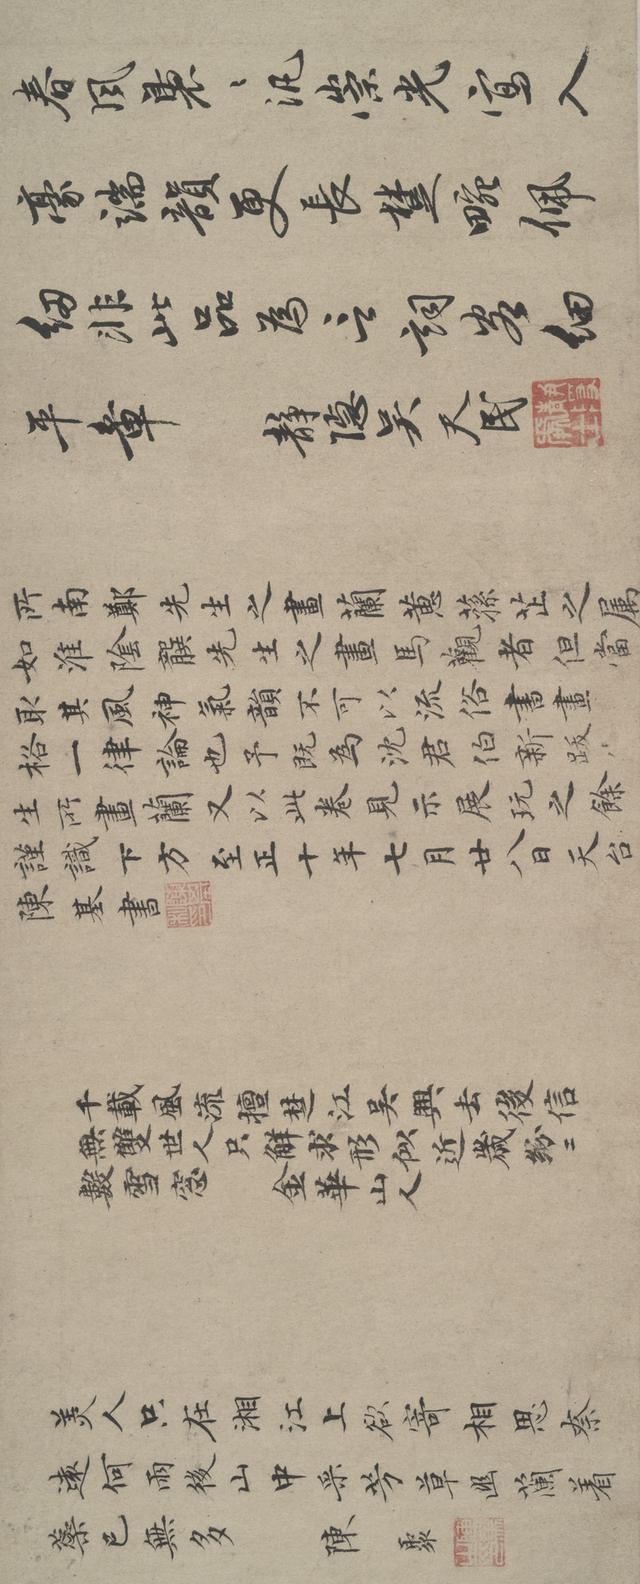 春風裊〻汎崇光寫入
豪端韻更長楚畹佩
紉非此品為言詞客細
平章 靜隱吳天民
所南鄭先生之畫蘭蕙蓀芷之屬
如淮陰龔先生之畫馬觀者但當
取其風神氣韻不可以流俗書畫
格一律論也予既為沈君伯新跋
生所畫蘭又以此卷見示展玩之餘
謹識下方至正十年七月廿八日天台
陳基書
千載風流擅楚江吳興去後信
無雙世人只解求形似近歲紛〻
數雪窓 金華山人
美人只在湘江上欲寄相思奈
遠何雨後山中采芳草幽蘭着
蘂已無多 陳聚